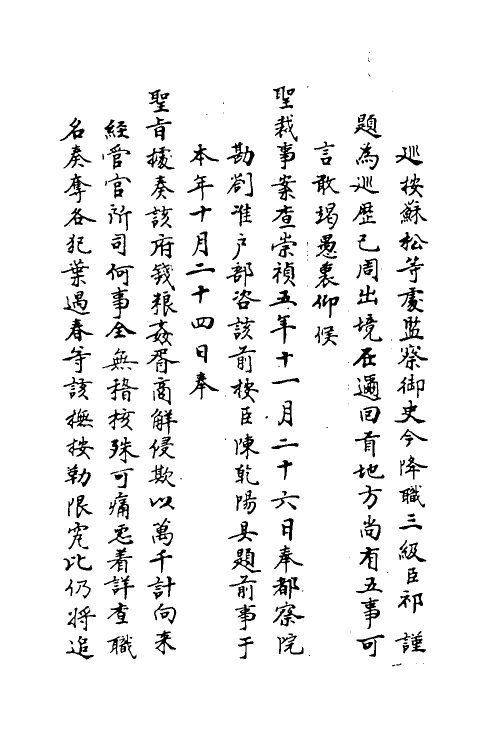 巡按蘇松等處監察御史今降職三級臣祁 謹
題為巡歷已周出境在邇回首地方尚有五事可
言敢竭愚衷仰候
聖裁事案查崇禎五年十一月二十六日奉都察院
勘劄准戶部咨該前按臣陳乾陽具題前事于
本年十月二十四日奉
聖旨據奏該府錢糧姦胥商解侵欺以萬千計向來
經管官所司何事全無稽核殊可痛惡着詳查職
名奏奪各犯葉遇春等該撫按勒限究比仍將追